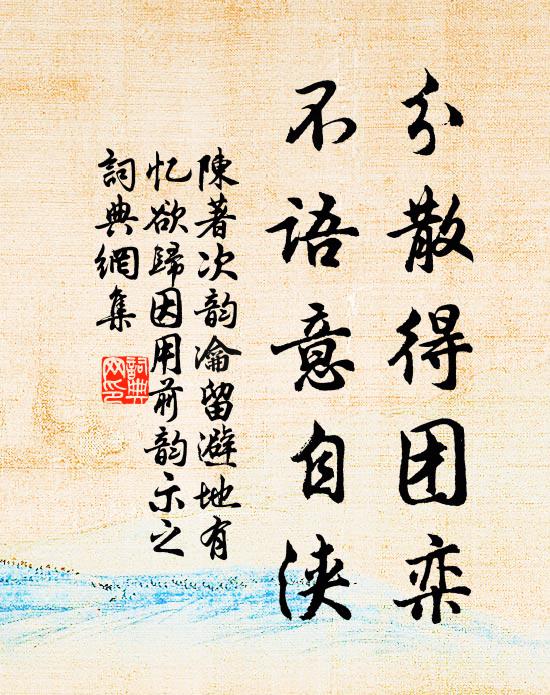 分散得团栾
不语意自浃
陳著次韵瀹留避地有
忆欲歸因用前韵示之
詞典網集
詞典网印